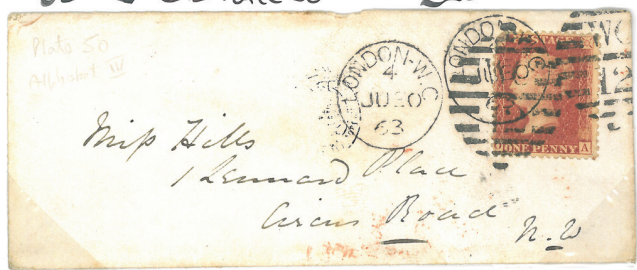 Plate 50
Alphabet IV
LONDON-W.C
4
JU 20
63
LONDON
JU 20
63
WC
12
ONE PENNY
A
Miss Hills
1 Lennard Place
Circus Road
N.W